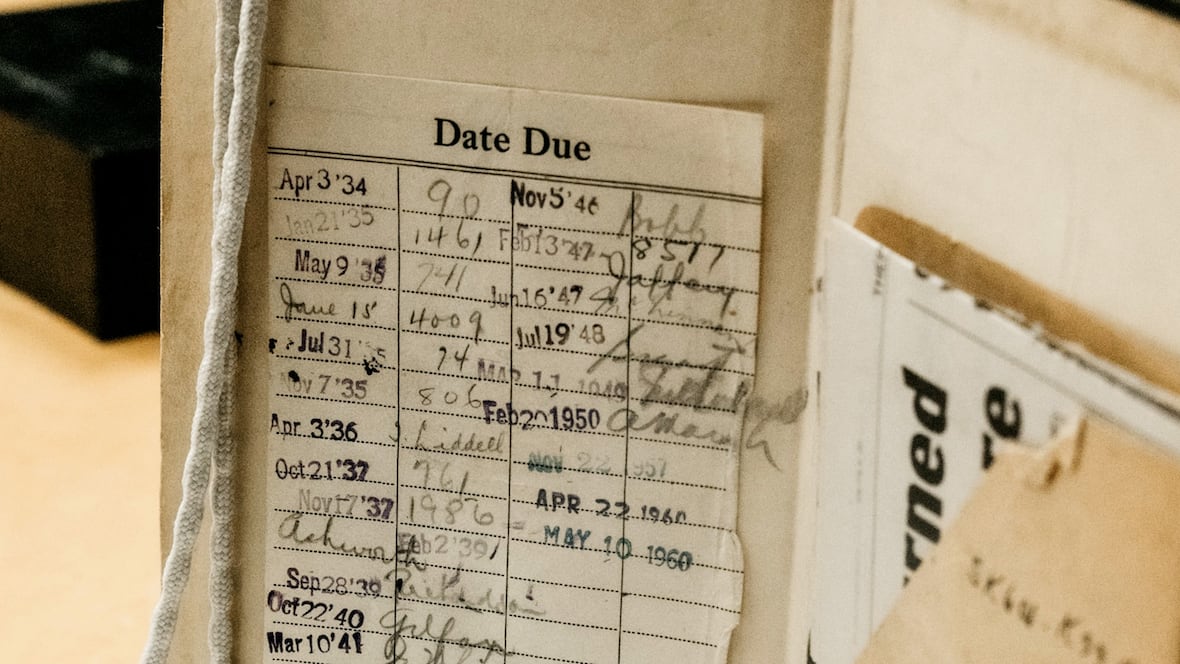 Date Due
Apr 3 '34 90 Nov 5 '46 Bobb
Jan 21 '35 1461 Feb 13 '47 8517
May 9 '35 741 Jaffary
June 15 4009 Jun 16 '47
Jul 31 74 Jul 19 '48
Nov 7 '35 806 MAR 11 1949
Apr 3 '36 J. Liddell Feb 20 1950
Oct 21 '37 761 NOV 22 1957
Nov 17 '37 1986 APR 22 1960
Ashworth Feb 2 '39 MAY 10 1960
Sep 28 '39 Richardson
Oct 22 '40
Mar 10 '41
rned
re